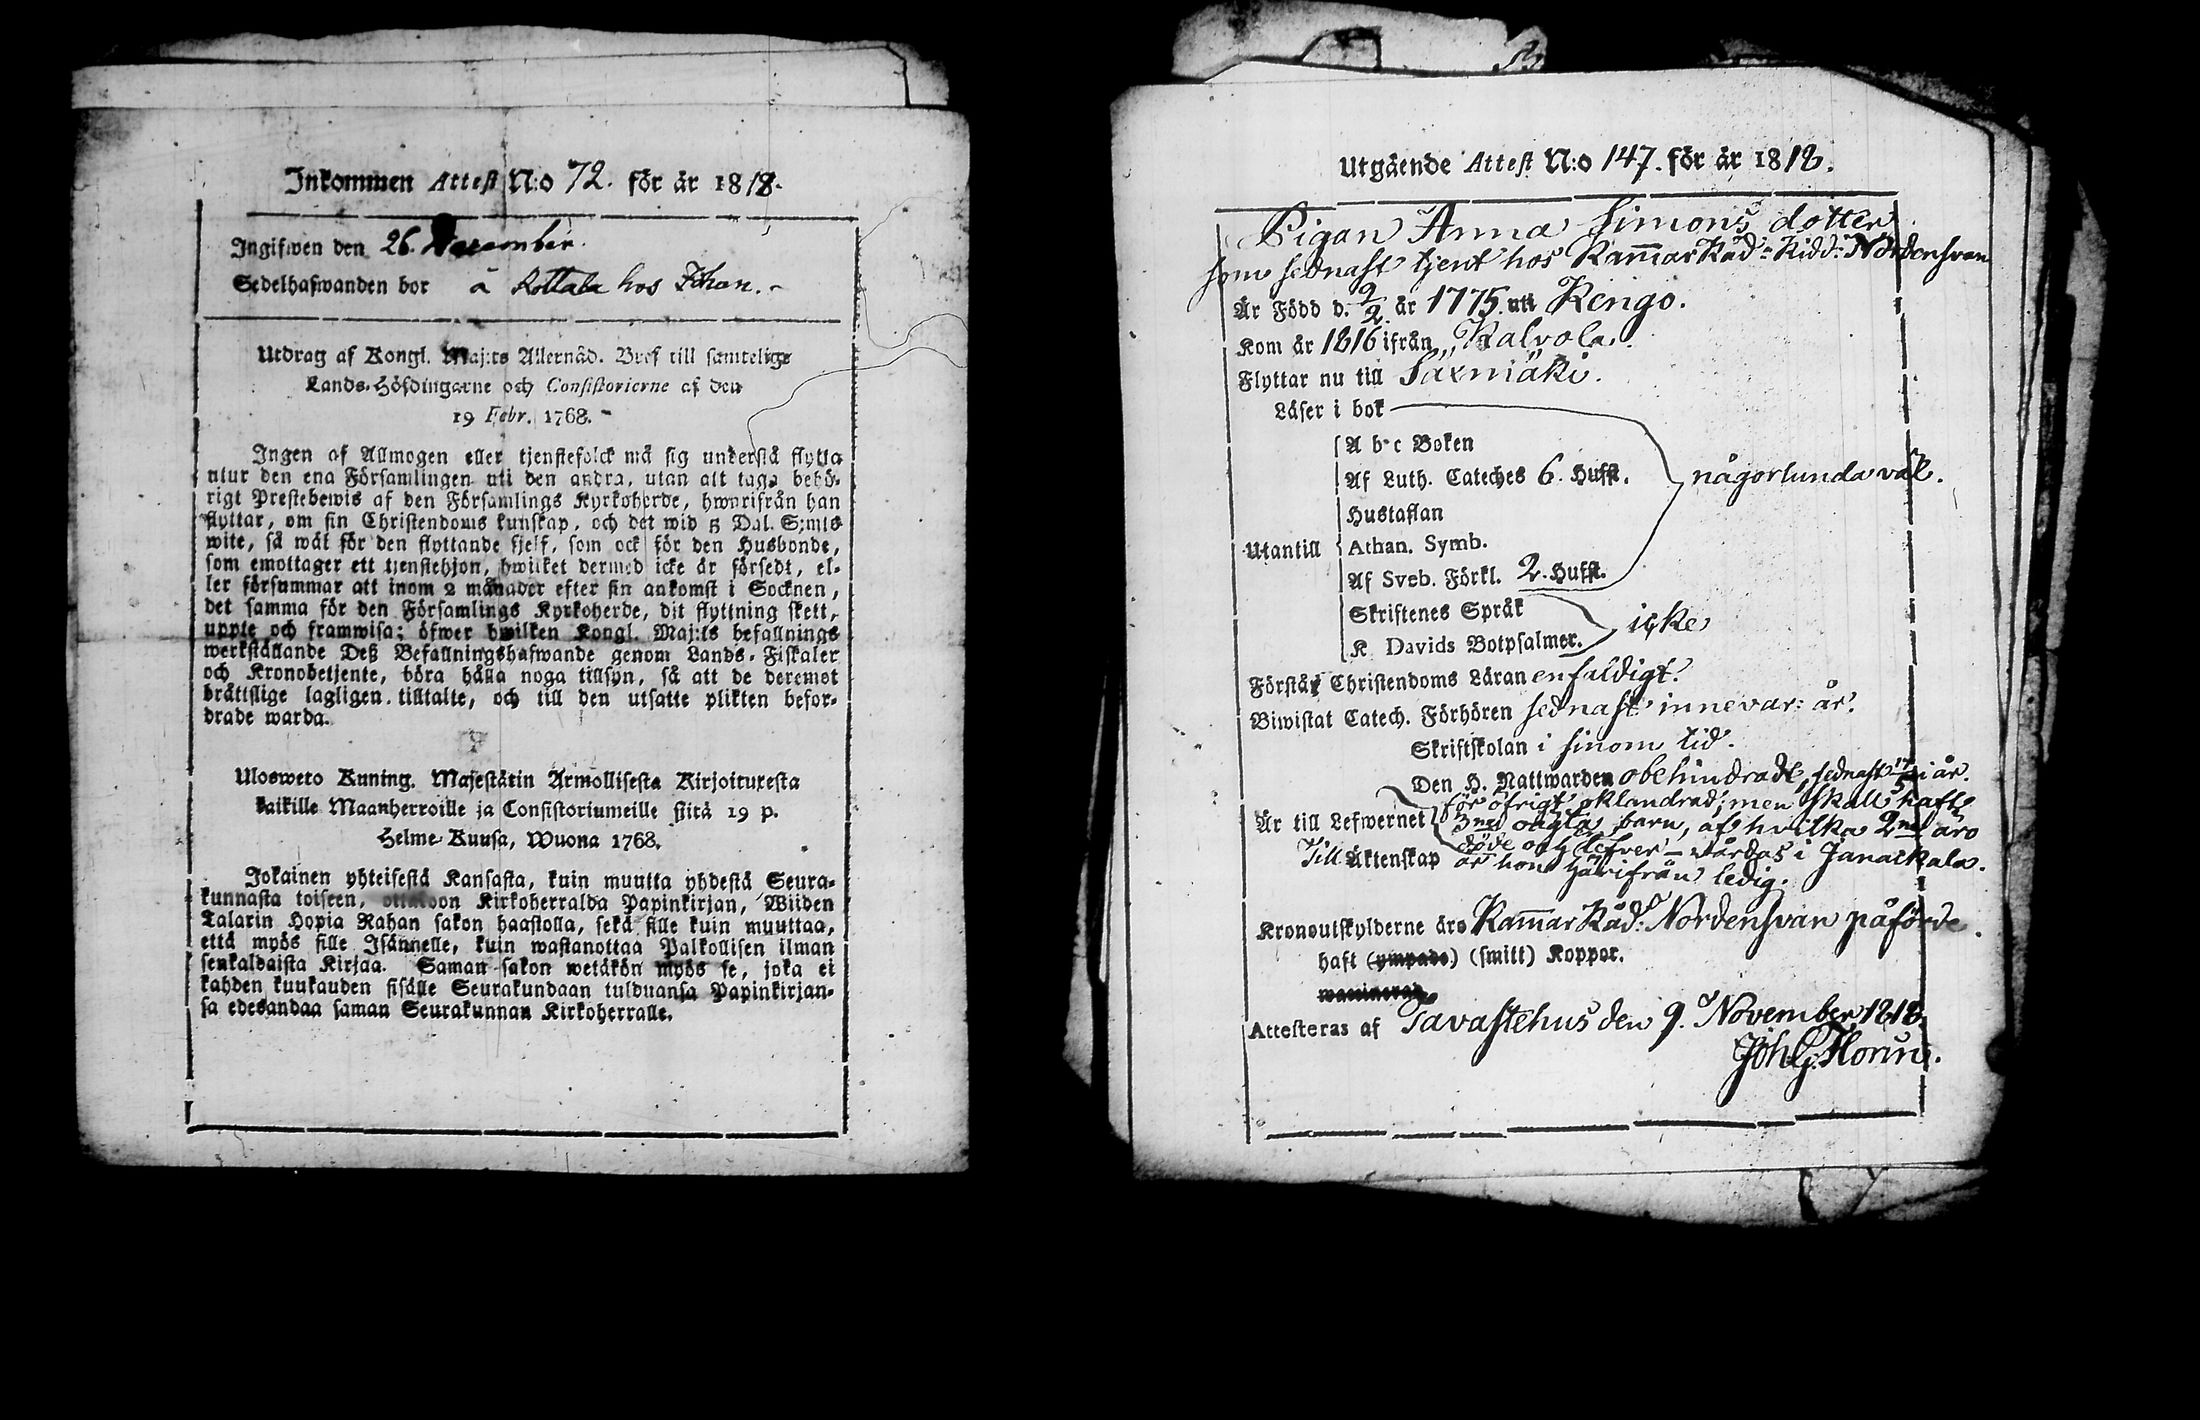 Inkommen Attest N:o 72. för år 1818.
Ingifwen den 26. December.
Sedelhafwanden bor å hos Johan.
Utdrag af Kongl. Maj:ts Allernåd. Bref till samtelige
Lands-Höfdingarne och Consistorierne af den
19 Febr. 1768.
Ingen af Allmogen eller tjenstefolck må sig understå flytta
utur den ena Församlingen uti den andra, utan att taga behö-
rigt Prestebewis af den Församlings Kyrkoherde, hwarifrån han
flyttar, om sin Christendoms kunskap, och det wid 5 Dal. S:mts
wite, så wäl för den flyttande sjelf, som ock för den Husbonde,
som emottager ett tjenstehjon, hwilket dermed icke är försedt, el-
ler försummar att inom 2 månader efter sin ankomst i Socknen,
det samma för den Församlings Kyrkoherde, dit flyttning skett,
uppte och framwisa; öfwer hwilken Kongl. Maj:ts befallnings
werkställande Deß Befallningshafwande genom Lands-Fiskaler
och Kronobetjente, böra hålla noga tillsyn, så att de deremot
bråttslige lagligen tilltalte, och till den utsatte plikten befor-
drade warda.
Ulosweto Kuning. Majestätin Armollisesta Kirjoituxesta
kaikille Maanherroille ja Consistoriumeille siitä 19 p.
Helme-Kuusa, Wuona 1768.
Jokainen yhteisestä Kansasta, kuin muutta yhdestä Seura-
kunnasta toiseen, ottakoon Kirkoherralda Papinkirjan, Wiiden
Talarin Hopia Rahan sakon haastolla, sekä sille kuin muuttaa,
että myös sille Isännelle, kuin wastanottaa Palkollisen ilman
senkaldaista Kirjaa. Saman sakon wetäkön myös se, joka ei
kahden kuukauden sisälle Seurakundaan tulduansa Papinkirjan-
sa edesandaa saman Seurakunnan Kirkoherralle.
Utgående Attest N:o 147. för år 1818.
Pigan Anna Simons dotter
som sednast tjent hos Kammar Råd: Ridd: Nordensvan
Är Född d. 9/2 år 1775. uti Rengo.
Kom år 1816 ifrån Kalvola.
Flyttar nu till Säxmäki.
Läser i bok
A b c Boken
Af Luth. Cateches 6. Hufst. någorlunda väl.
Hustaflan
Utantill Athan. Symb.
Af Sveb. Förkl. 2. Hufst.
Skriftenes Språk
K Davids Botpsalmer. icke
Förstår Christendoms Läran enfaldigt.
Biwistat Catech. Förhören sednast innevar: år.
Skriftskolan i sinom tid.
Den H. Nattwarden obehindradt, sednast i år.
för öfrigt oklandrad; men skall haft
Är till Lefwernet 3ne oägta barn, af hvilka 2ne äro
döde och lefver vårdas i Janackala.
Till Äktenskap är hon härifrån ledig.
Kronoutskylderne äro Kammar Råd: Nordensvan påförde.
haft (ympade.) (smitt) Koppor.
Attesteras af Tavastehus den 9. November 1818.
Joh. G. Florin.